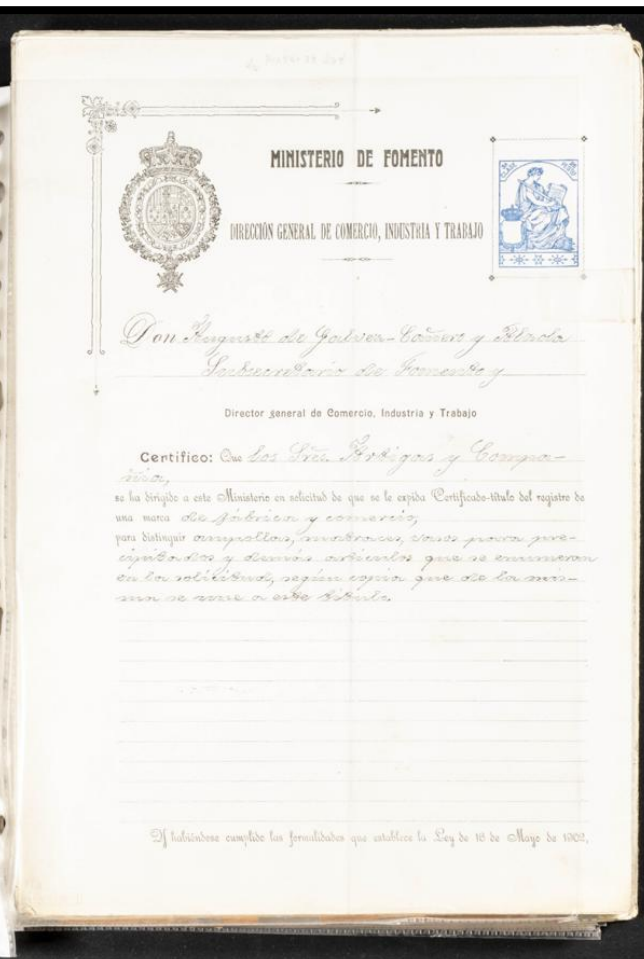 MINISTERIO DE FOMENTO
DIRECCIÓN GENERAL DE COMERCIO, INDUSTRIA Y TRABAJO
Don Augusto de Galvez-Cañero y Alzola
Subsecretario de Fomento y
Director general de Comercio, Industria y Trabajo
Certifico: Que los Sres. Artigas y Compa-
ñia,
se ha dirigido a este Ministerio en solicitud de que se le expida Certificado-título del registro de
una marca de fábrica y comercio,
para distinguir ampollas, matraces, vasos para pre-
cipitados y demás artículos que se enumeran
en la solicitud, según copia que de la mis-
ma se une a este título.
Y habiéndose cumplido las formalidades que establece la Ley de 16 de Mayo de 1902,